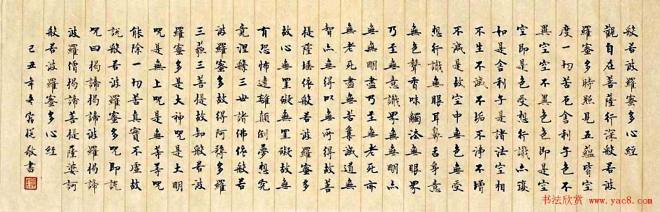 般若波羅蜜多心經
觀自在菩薩行深般若波
羅蜜多時照見五蘊皆空
度一切苦厄舍利子色不
異空空不異色色即是空
空即是色受想行識亦復
如是舍利子是諸法空相
不生不滅不垢不淨不增
不減是故空中無色無受
想行識無眼耳鼻舌身意
無色聲香味觸法無眼界
乃至無意識界無無明亦
無無明盡乃至無老死亦
無老死盡無苦集滅道無
智亦無得以無所得故菩
提薩埵依般若波羅蜜多
故心無罣礙無罣礙故無
有恐怖遠離顛倒夢想究
竟涅槃三世諸佛依般若
波羅蜜多故得阿耨多羅
三藐三菩提故知般若波
羅蜜多是大神咒是大明
咒是無上咒是無等等咒
能除一切苦真實不虛故
說般若波羅蜜多咒即說
咒曰揭諦揭諦波羅揭諦
波羅僧揭諦菩提薩婆訶
般若波羅蜜多心經
己丑年冬 敬書
书法欣赏
www.yac8.com